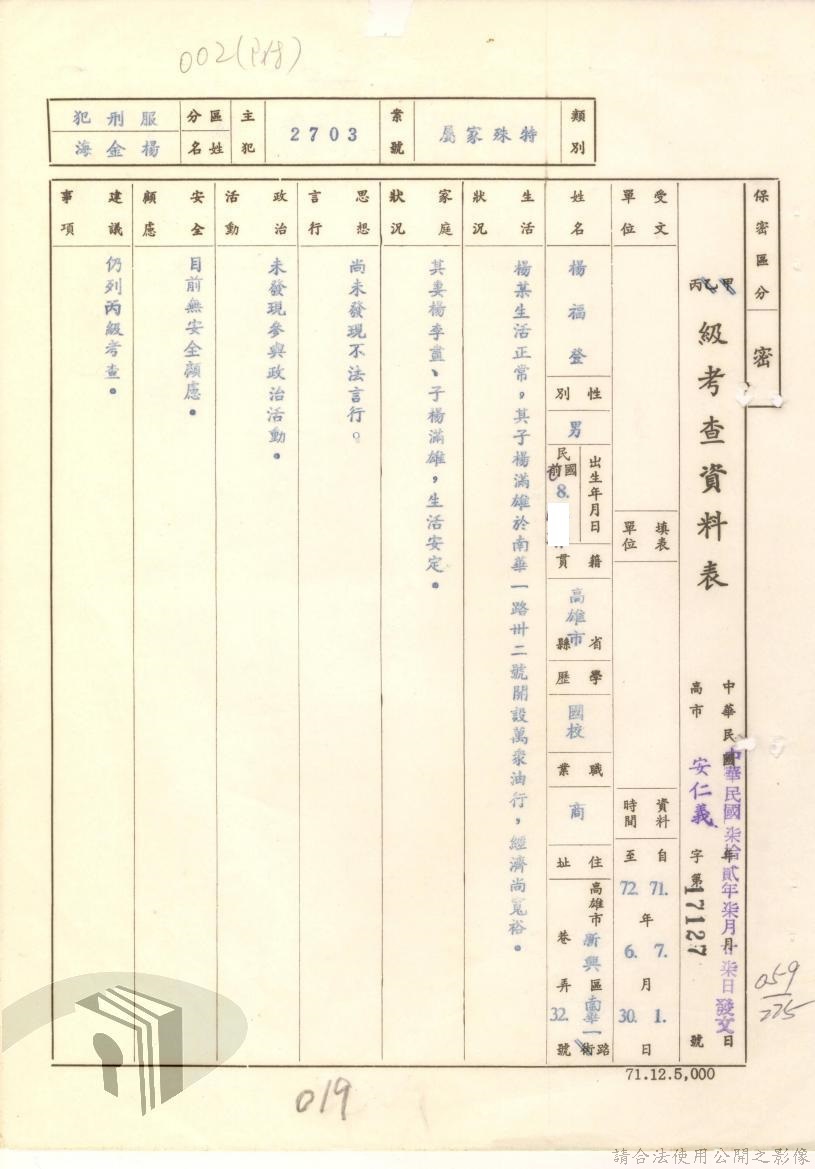 002(附)
類別
特殊家屬
業號
2703
主犯
區分
服刑犯
姓名
楊金海
保密區分
密
甲乙丙級考查資料表
中華民國 年 月 日
中華民國柒拾貳年柒月 柒日發文
高市 安仁義 字第17127號
受文單位
填表單位
資料時間
自71.年7.月1.日
至72.6.30.
姓名
楊福登
性別
男
出生年月日
民國前8.
籍貫
高雄市
省縣
學歷
國校
職業
商
住址
高雄市新興區南華一路街
巷弄32.號
生活狀況
楊某生活正常,其子楊滿雄於南華一路卅二號開設萬眾油行,經濟尚寬裕。
家庭狀況
其妻楊李盡、子楊滿雄,生活安定。
思想言行
尚未發現不法言行。
政治活動
未發現參與政治活動。
安全顧慮
目前無安全顧慮。
建議事項
仍列丙級考查。
71.12.5,000
059
225
019
請合法使用公開之影像